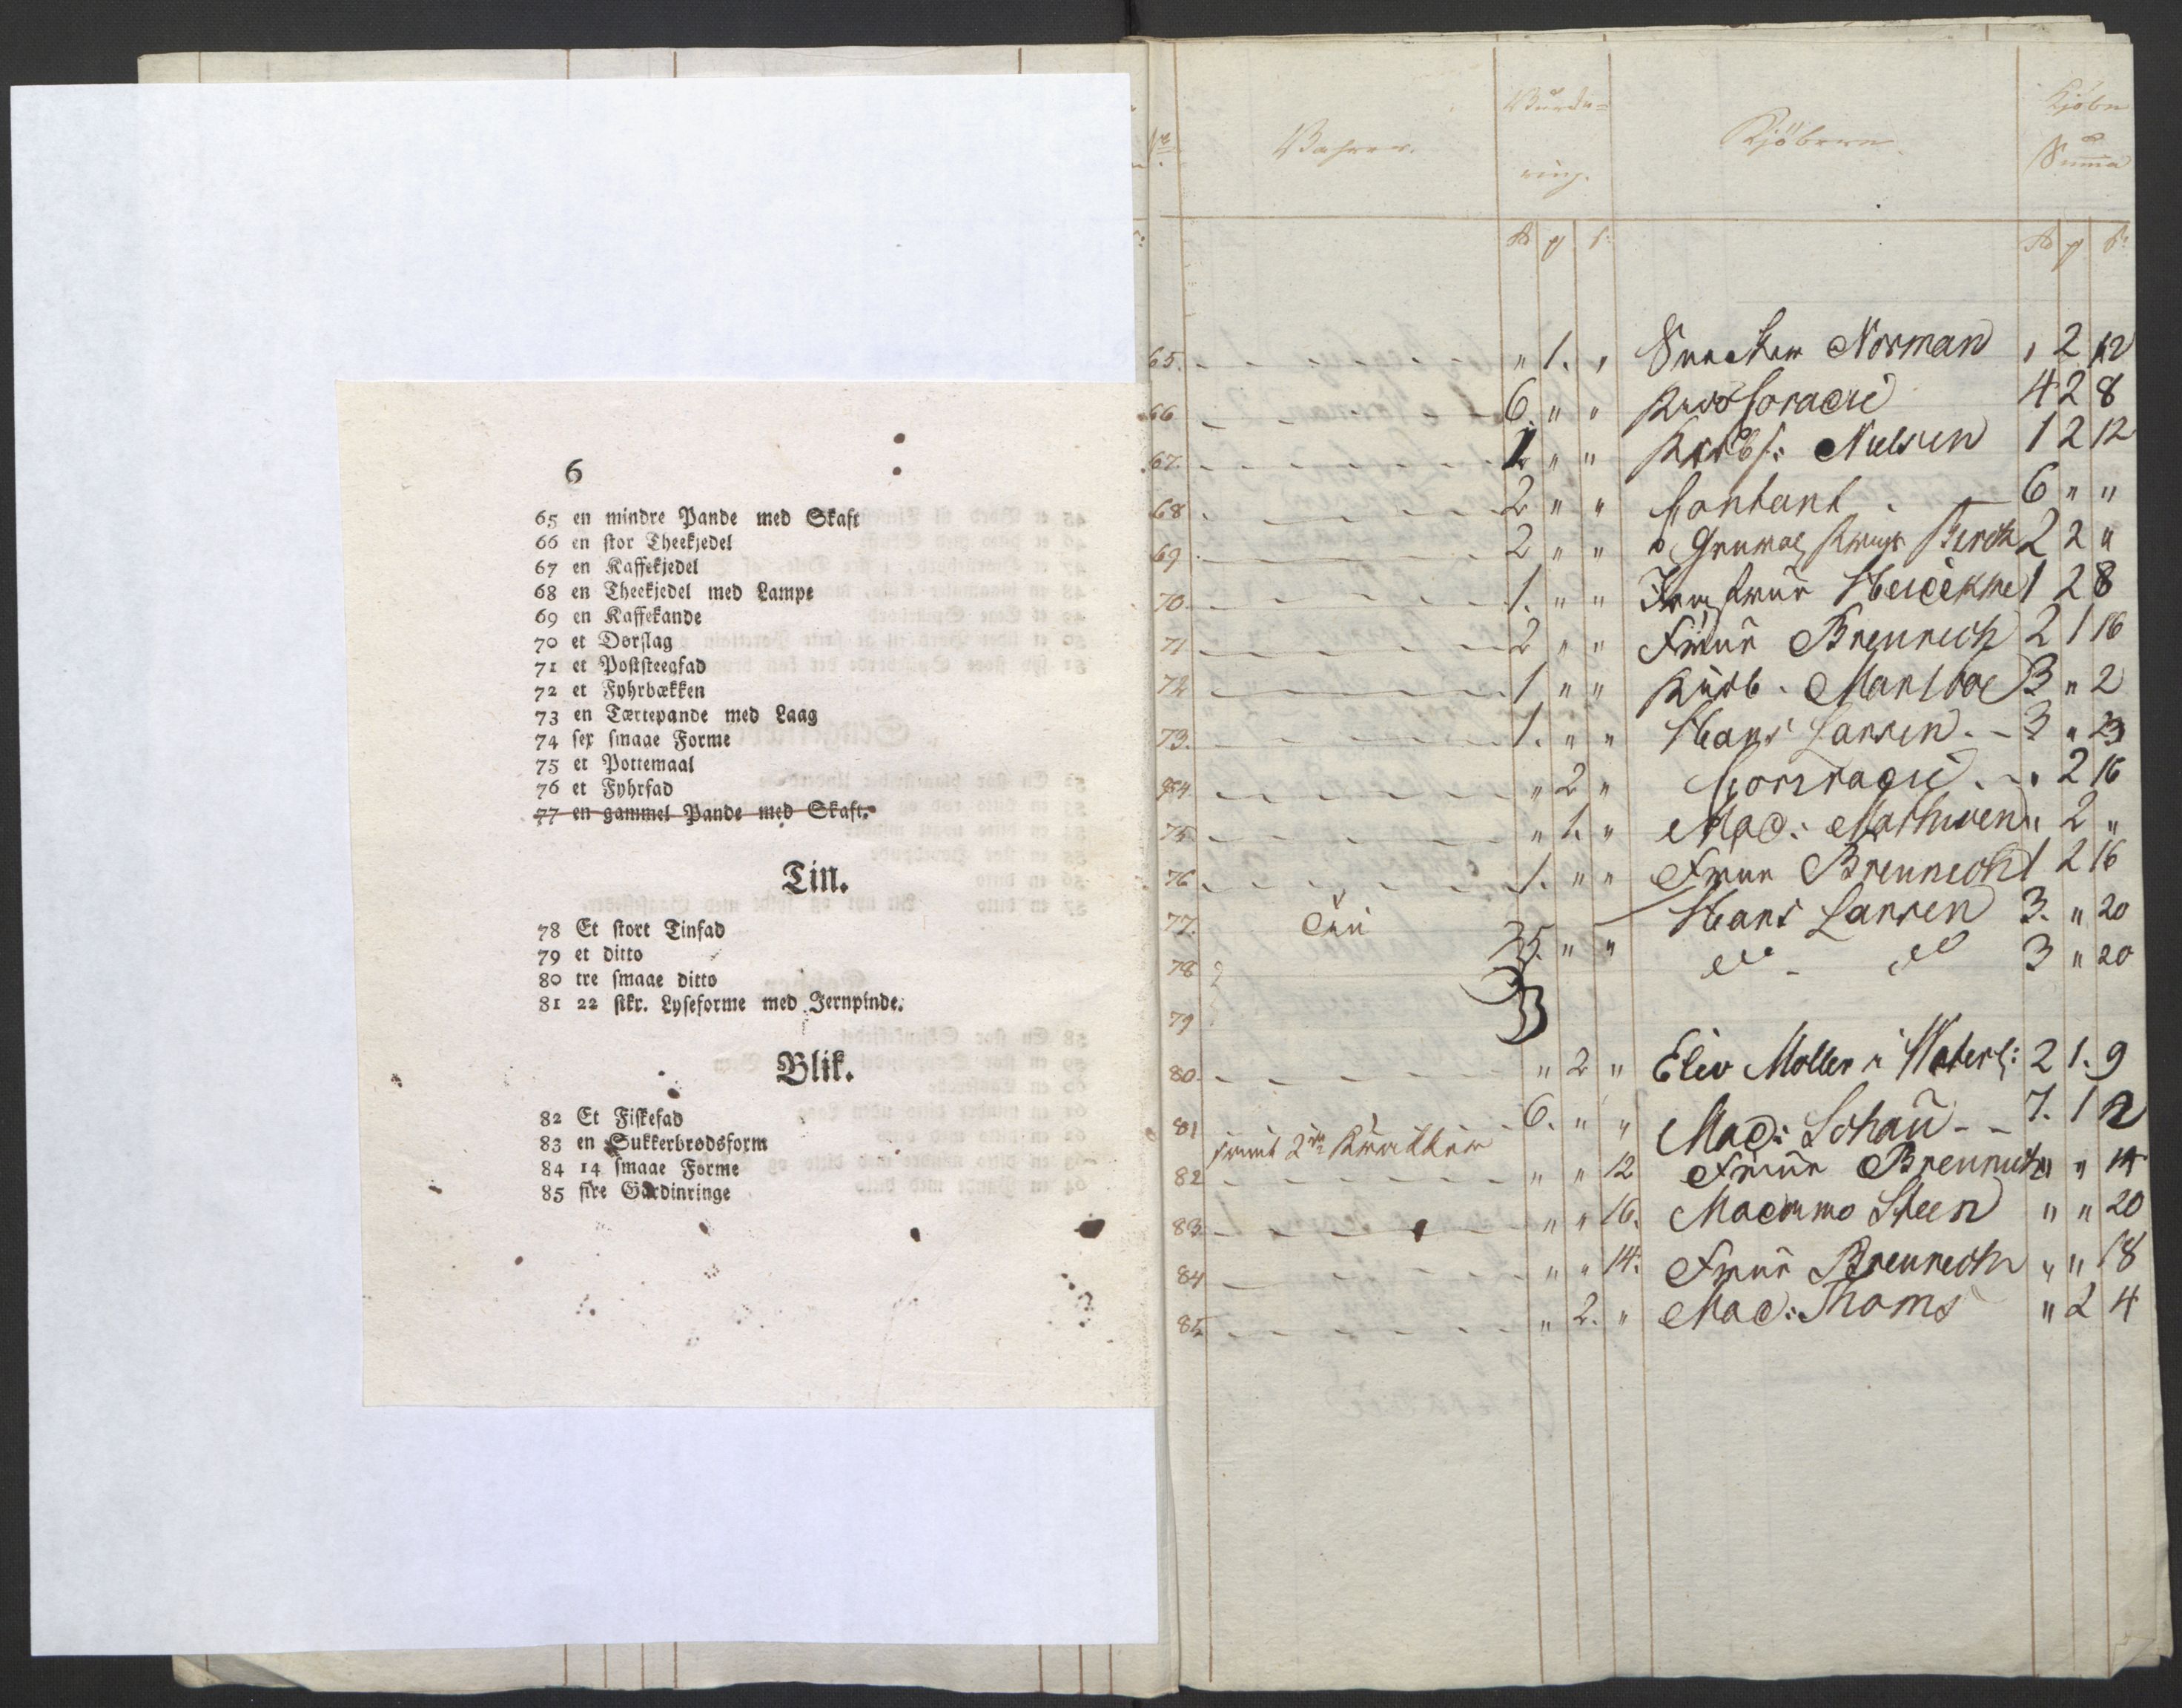 6
65 en mindre Pande med Skaft
66 en stor Theekjedel
67 en Kaffekjedel
68 en Theekjedel med Lampe
69 en Kaffekande
70 et Dorslag
71 et Poststeegfad
72 et Fyhrbækken
73 en Tærtepande med Laag
74 sex smaae Forme
75 et Pottemaal
76 et Fyhrfad
77 en gammel Pande med Skaft.
Tin.
78 Et stort Tinfad
79 et ditto
80 tre smaae ditto
81 22 stkr. Lyseforme med Jernpinde.
Blik.
82 Et Fiskefad
83 en Sukkerbrødsform
84 14 smaae Forme
85 fire Gardinringe
Vahrer. Vurde= Kjøbere Kjøbe
ring. Summa
65. " 1. " Norman " 2 12
66 6. " " 4 2 8
67. 1 " " Nielsen 1 2 12
68 2 " " Contant 6 " "
69 2 " " 2 2 "
70 1. " " 1 2 8
71 2 " " Frue Brennech 2 1 16
72 1 " " 3 " 2
73. 1. " " Hans Larsen 3 " 23
74 " 2 " " 2 16
75 " 1. " Mad: " 2 "
76 1. " " Frue Brennech 1 2 16
77. Tin Hans Larsen 3. " 20
78 3 " 20
79
80. " 2 " Moller 2 1. 9
81 6. " " Mad: Schau 7. 1 2
82 " " 12 Frue Brennech " "
83 " " 16. Steen " " 20
84 " " 14. Frue Brennech " " 18
85 " 2. " Mad: Thoms " 2 4